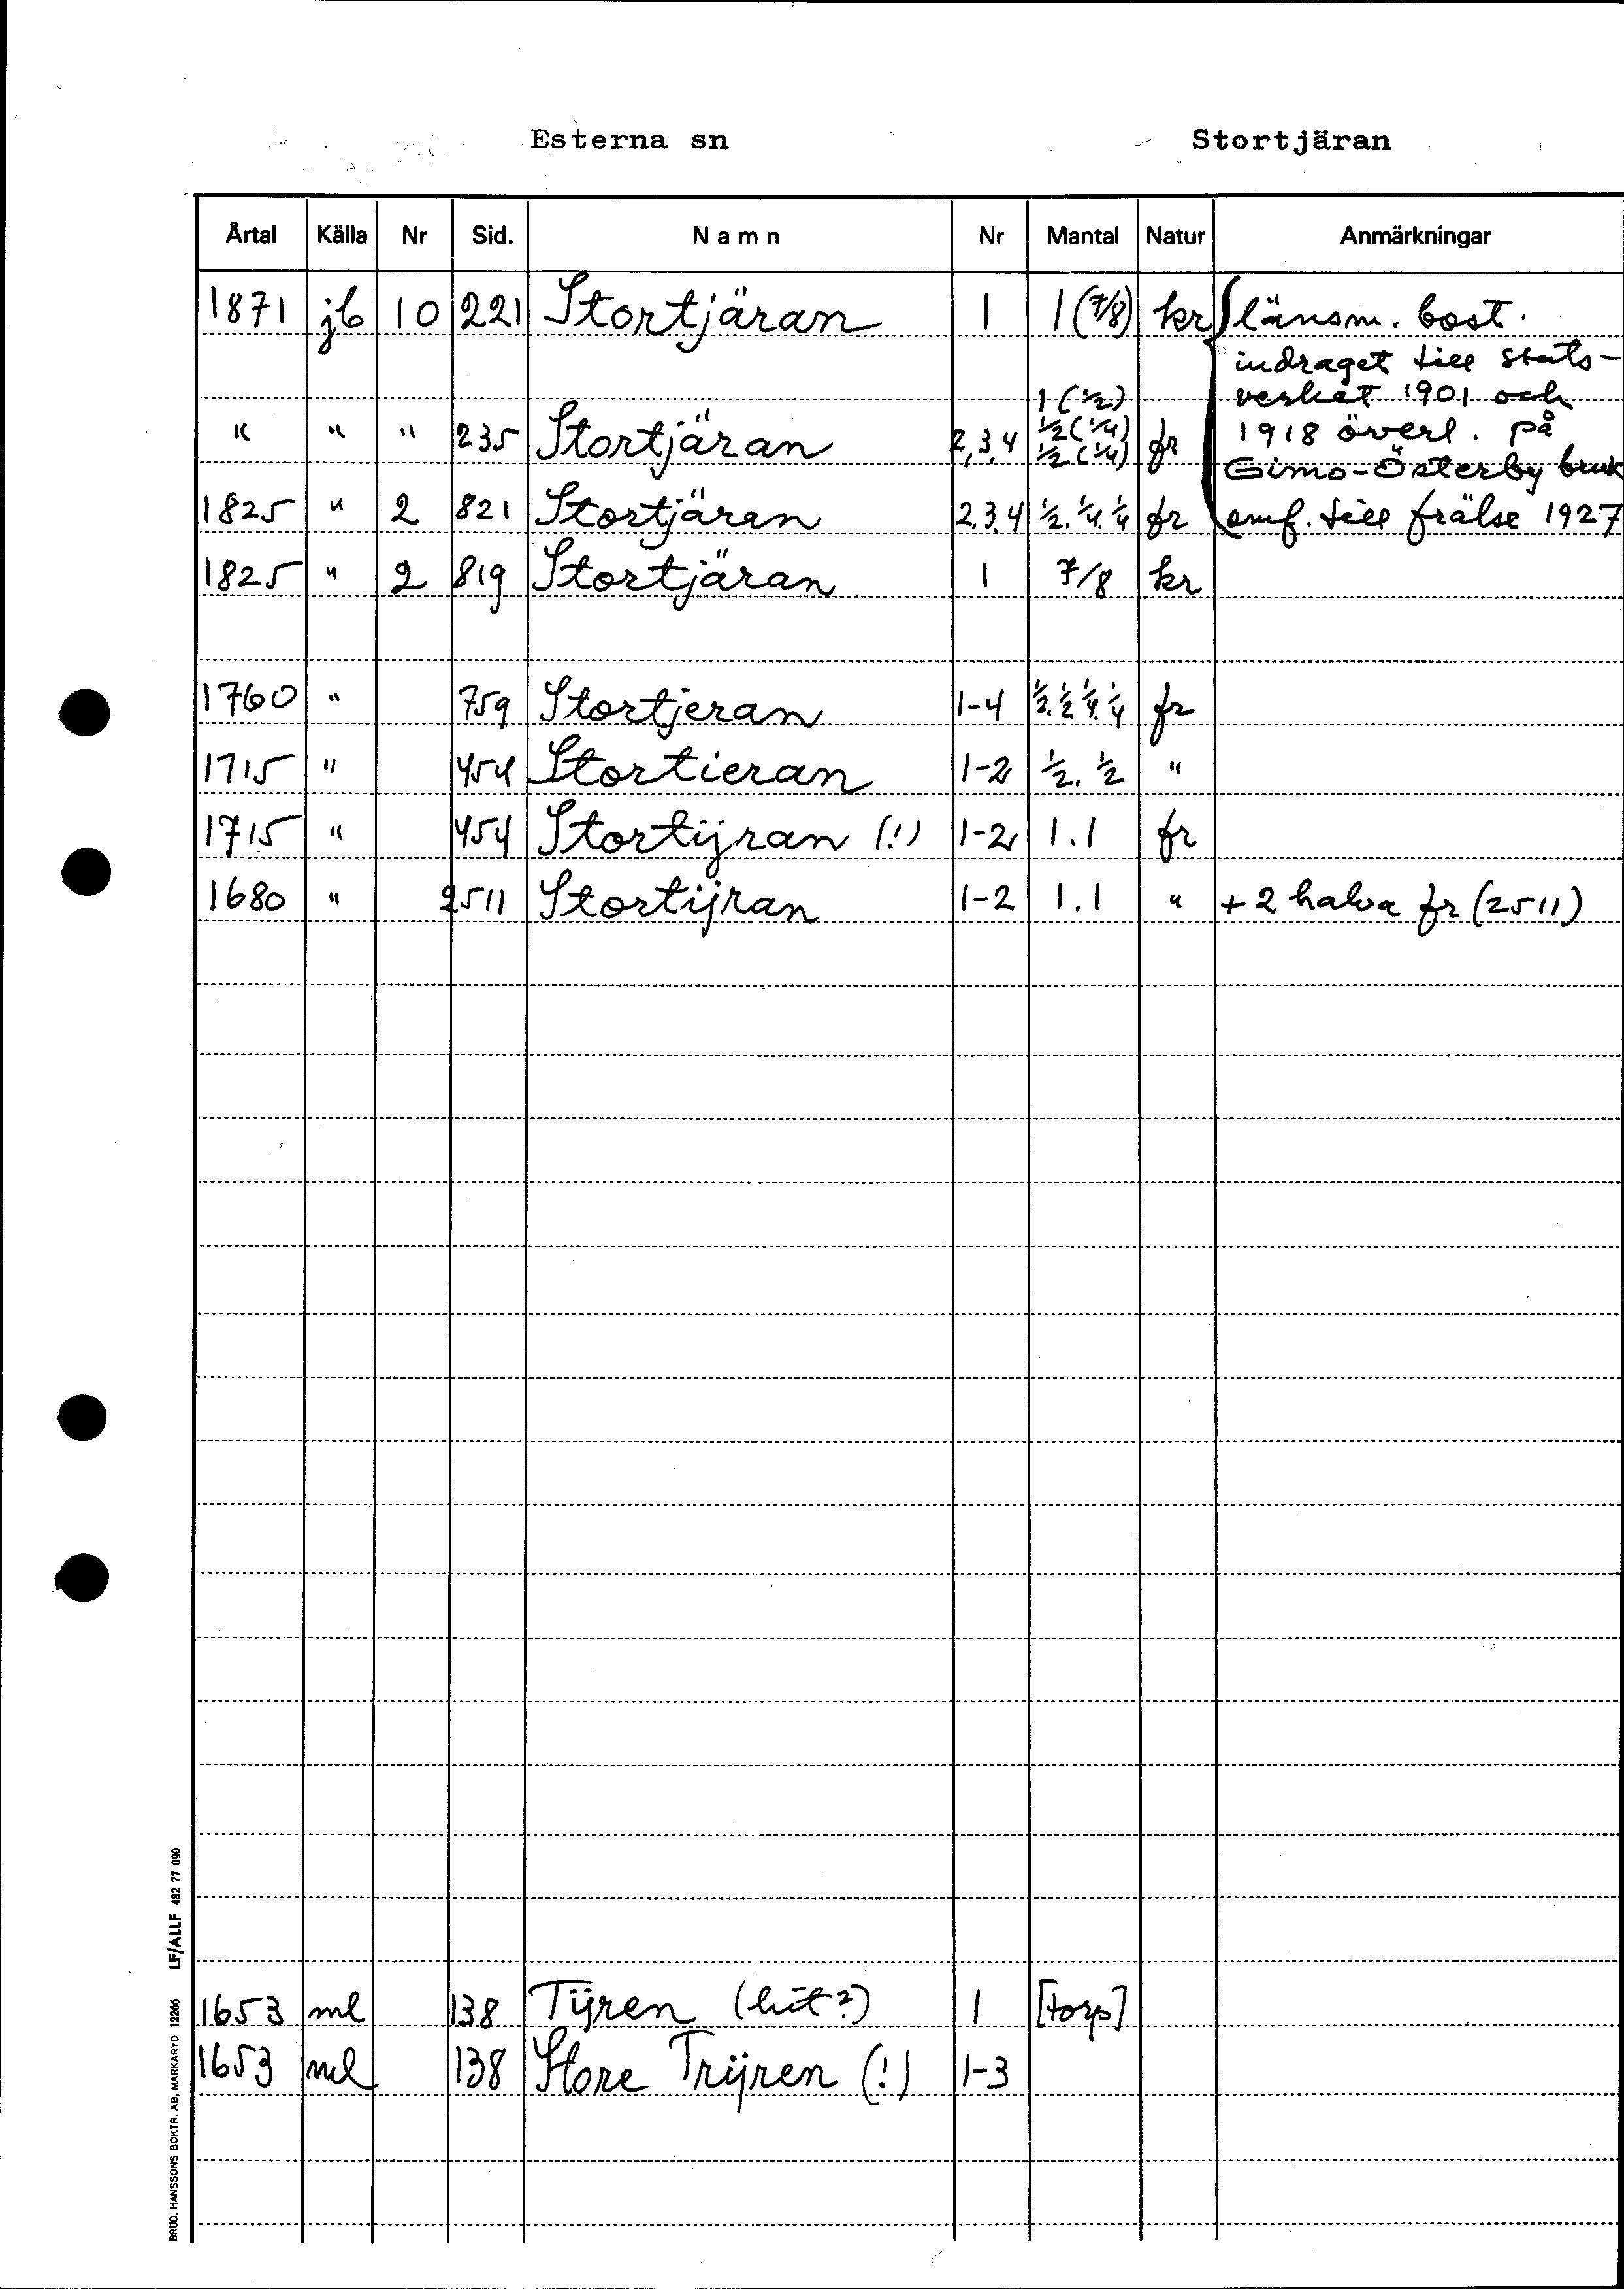 Esterna sn Stortjäran
Årtal Källa Nr Sid. Namn Nr Mantal Natur Anmärkningar
1871 jb 10 221 Stortjäran 1 1 (7/8) kr länsm. bost.
indraget till stats-
1 (1/2) verket 1901 och
" " " 235 Stortjäran 2,3,4 1/2 (1/4) fr 1918 överl. på
1/2 (1/4) Gimo-Österby bruk
1825 " 2 821 Stortjäran 2,3,4 1/2. 1/4. 1/4 fr omf. till frälse 1927
1825 " 2 819 Stortjäran 1 7/8 kr
1760 " 759 Stortjeran 1-4 1/2. 1/2 1/4. 1/4 fr
1715 " 454 Stortieran 1-2 1/2. 1/2 "
1715 " 454 Stortijran (!) 1-2 1.1 fr
1680 " 2511 Stortijran 1-2 1.1 " + 2 halva fr (2511)
1653 ml 138 Tijren (hit?) 1 [torp]
1653 ml 138 Store Trijren (!) 1-3
BRÖD. HANSSONS BOKTR. AB, MARKARYD 12266 LF/ALLF 482 77 090